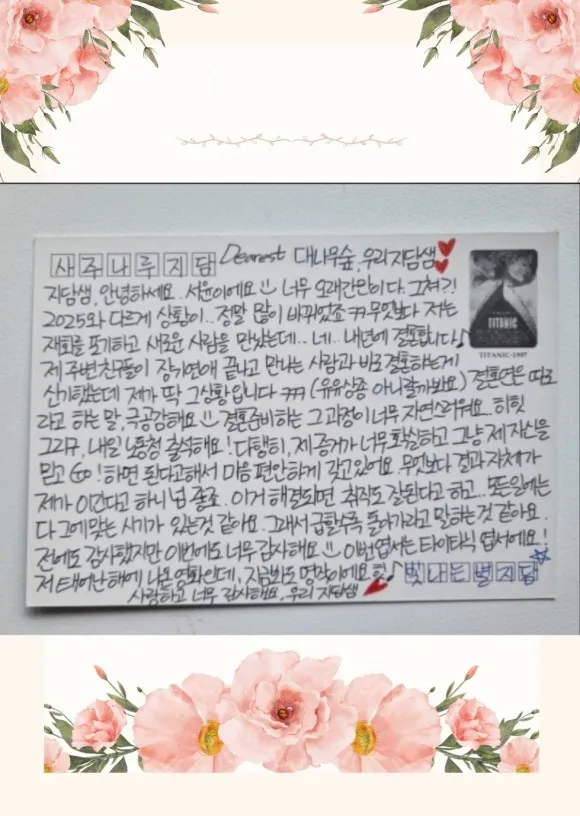 사주나루지담 Dearest 대나무숲, 우리지담쌤
지담쌤, 안녕하세요. 서윤이에요 너무 오래간만이다. 그쳐?!
2025와 다르게 상황이.. 정말 많이 바뀌었죠 ㅋㅋ 무엇보다 저는
재회를 포기하고 새로운 사람을 만났는데.. 네.. 내년에 결혼합니다♪
제 주변 친구들이 장기연애 끝나고 만나는 사람과 바로 결혼하는게
신기했는데 제가 딱 그상황입니다 ㅋㅋㅋ (유유상종 아니랄까봐요) 결혼연은 따로
라고 하는 말, 극공감해요 결혼준비하는 그 과정이 너무 자연스러워요. 히힛
그리구, 내일 노동청 출석해요! 다행히, 제 증거가 너무 확실하고 그냥 제 자신을
믿고 Go! 하면 된다고해서 마음 편안하게 갖고있어요. 무엇보다 결과 자체가
제가 이긴다고 하니 넘 좋죠. 이거 해결되면 취직도 잘된다고 하고.. 모든일에는
다 그에 맞는 시기가 있는것 같아요. 그래서 급할수록 돌아가라고 말하는것 같아요.
전에도 감사했지만 이번에도 너무 감사해요 이번엽서는 타이타닉 엽서에요!
저 태어난 해에 나온 영화인데, 지금봐도 명작이에요 힛♪ 빛나는별지담
사랑하고 너무 감사해요, 우리 지담쌤
TITANIC
TITANIC-1997